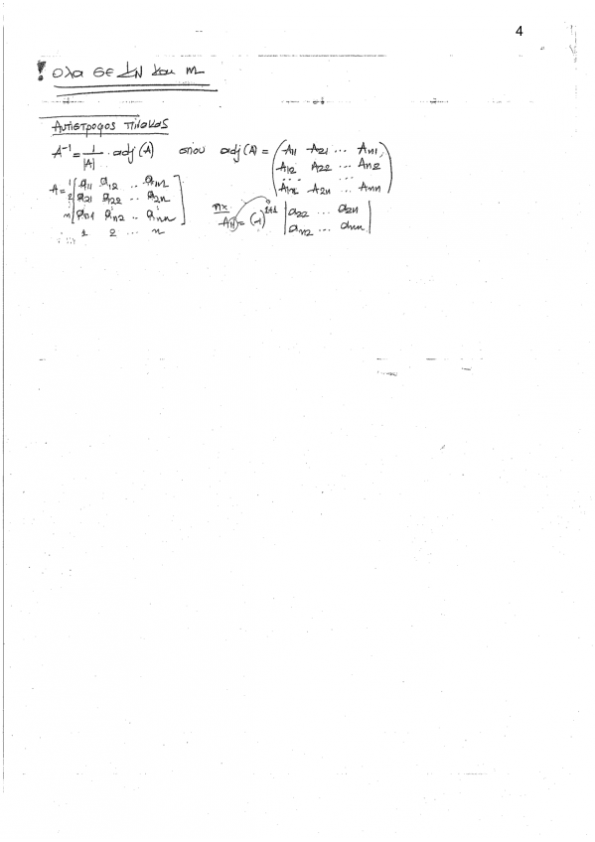 4
! Ολα σε kN και m
Αντιστροφος πίνακας
A⁻¹ = 1/|A| · adj(A) οπου adj(A) = ( A11 A21 ... An1,
A12 A22 ... An2
... ...
A1n A2n ... Ann )
A = 1 [ a11 a12 .. a1n ]
2 [ a21 a22 .. a2n ]
n [ an1 an2 .. ann ]
1 2 ... n
πx A11 = (-1)¹⁺¹ | a22 ... a2n
an2 ... ann |